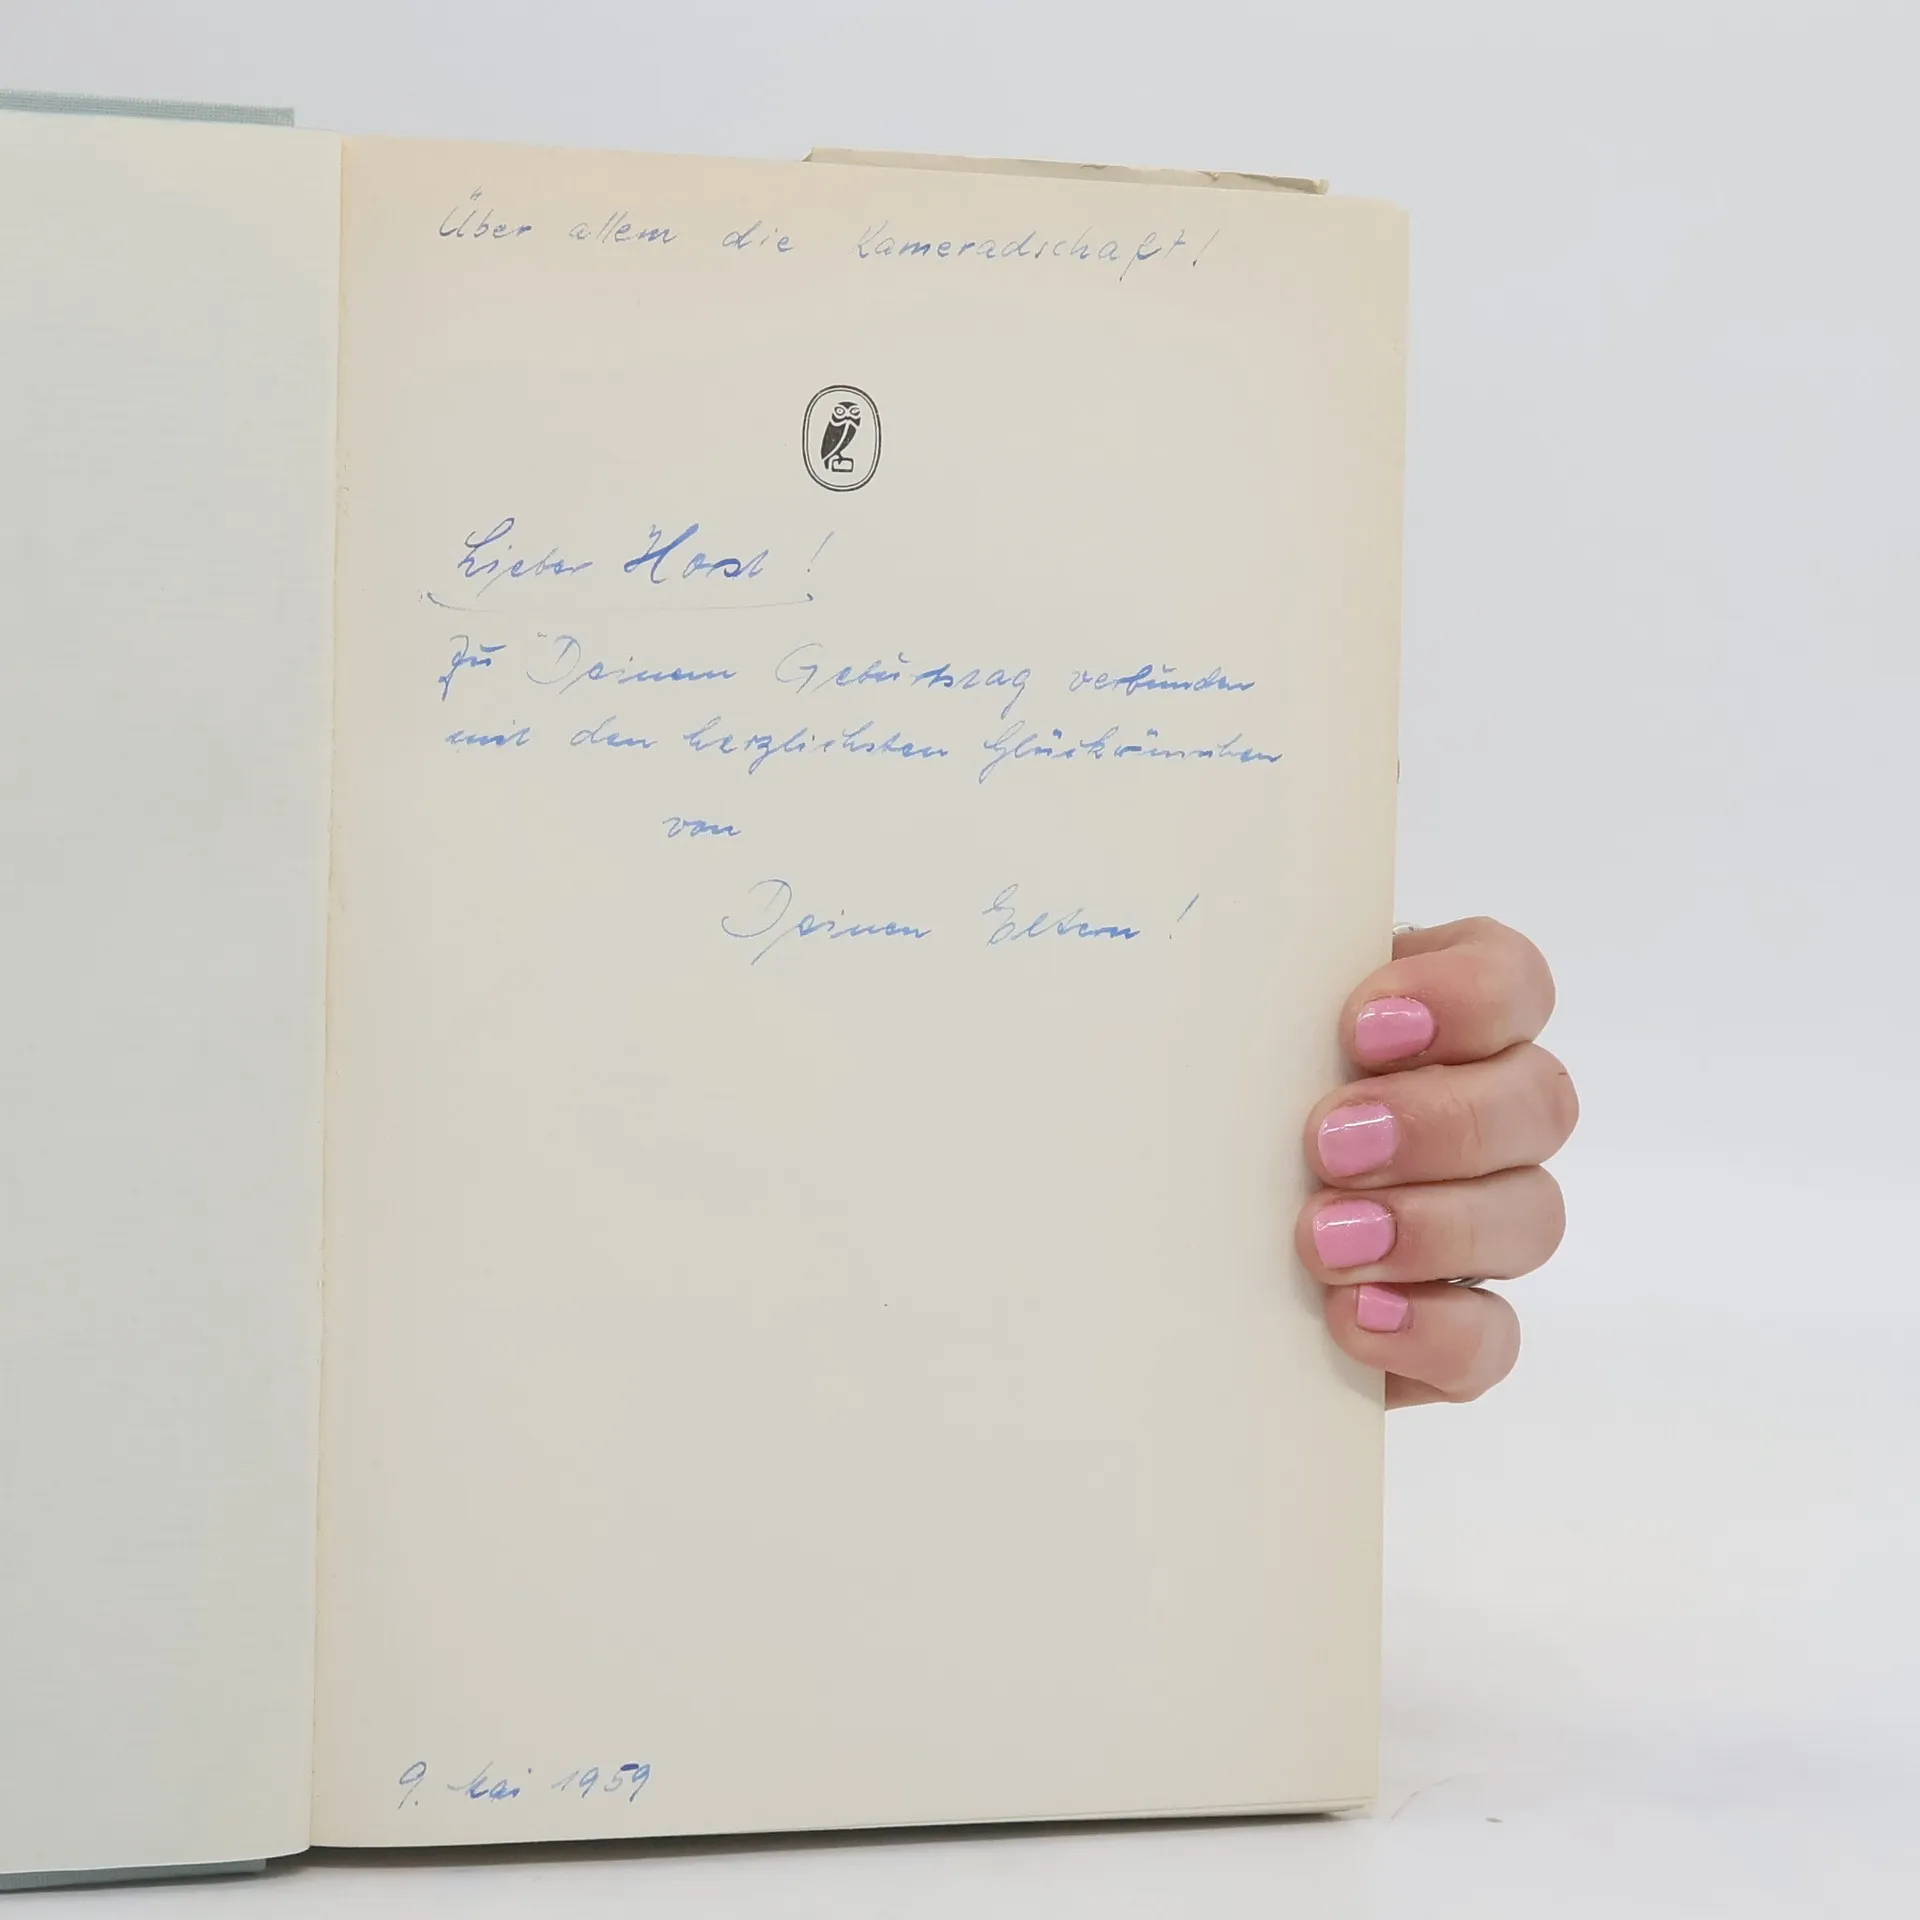 Über allem die Kameradschaft!
Lieber Horst!
Zu Deinem Geburtstag verbunden
mit den herzlichsten Glückwünschen
von
Deinen Eltern!
9. Mai 1959